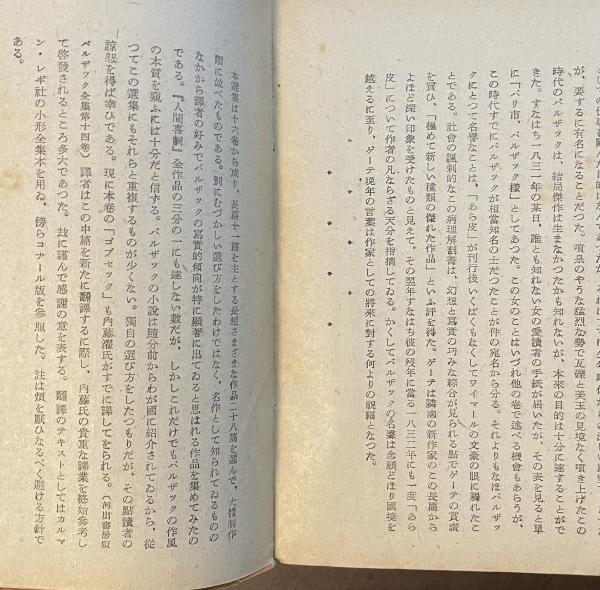 が、要するに有名になることだつた。噴泉のやうな猛烈な勢で瓦礫と美玉の見境なく噴き上げたこの
時代のバルザックは、結局傑作は生まなかつたかも知れないが、本来の目的は十分に達することがで
きた。すなはち一八三一年の某日、誰とも知れない女の愛讀者の手紙が届いたが、その表を見ると單
に「パリ市、バルザック樣」としてあつた。この女のことはいづれ他の巻で述べる機會もあらうが、
この時代すでにバルザックが相當知名の士だつたことが件の宛名から分る。それよりもなほバルザッ
クにとつて名譽なことは、「あら皮」が刊行後いくばくもなくしてワイマールの文豪の眼に觸れたこ
とである。社會の諷刺的なこの病理解剖書は、幻想と寫實の巧みな綜合が見られる點でゲーテの賞讃
を買ひ、「極めて新しい種類の傑れた作品」といふ評を得た。ゲーテは隣國の新作家のこの長篇から
よほど深い印象を受けたものと見えて、その翌年すなはち彼の歿年に當る一八三二年にも一度「あら
皮」について作者の凡ならざる天分を指摘してゐる。かくしてバルザックの名聲は念願どほり國境を
越えるに至り、ゲーテ晩年の言葉は作家としての將來に對する何よりの祝福となつた。
* * * * *
本選集は十六卷から成り、長篇十一篇を主とする長短さまざまな作品二十八篇を選んで、大體制作
順に竝べたものである。別にむづかしい選び方をしたわけではなく、名作として知られてゐるものの
なかから譯者の好みでバルザックの寫實的傾向が特に顯著に出てゐると思はれる作品を集めてみたの
である。『人間喜劇』全作品の三分の一にも達しない數だが、しかしこれだけでもバルザックの作風
の本質を窺ふには十分だと信ずる。バルザックの小説は隨分前からわが國に紹介されてゐるから、從
つてこの選集にもそれらと重複するものが少くない。獨自の選び方をしたつもりだが、その點讀者の
諒恕を得ば幸ひである。現に本卷の「ゴプセック」も内藤濯氏がすでに譯してをられる。(河出書房版
バルザック全集第十四卷) 譯者はこの中篇を新たに飜譯するに際し、内藤氏の貴重な譯業を終始參考し
て啓發されるところ多大であつた。玆に謹んで感謝の意を表する。飜譯のテキストとしてはカルマ
ン・レギ社の小形全集本を用ゐ、傍らコナール版を參照した。註は煩を厭ひなるべく避ける方針で
ある。